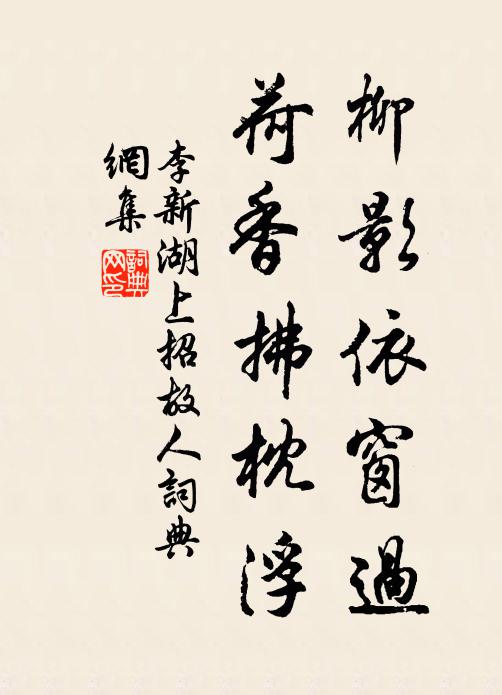 柳影依窗過
荷香拂枕浮
李新湖上招故人詞典
網集
詞典
网印